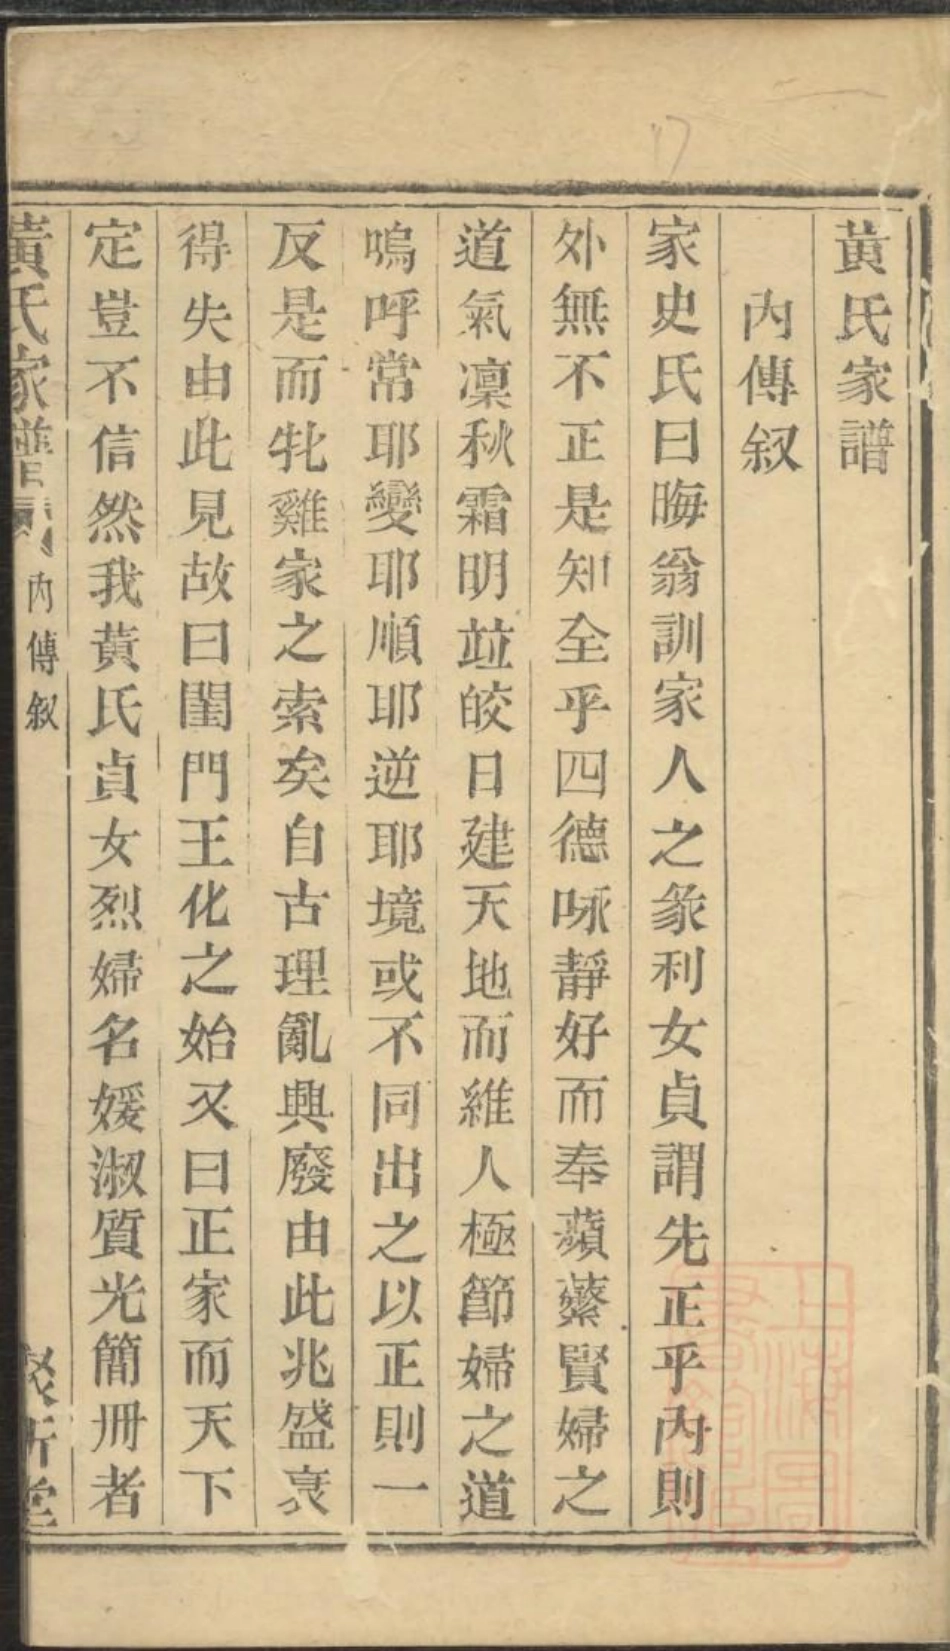 黄氏家譜
內傳叙
家史氏曰晦翁訓家人之彖利女貞謂先正乎內則
外無不正是知全乎四德咏靜好而奉蘋蘩賢婦之
道氣凜秋霜明竝皎日建天地而維人極節婦之道
嗚呼常耶變耶順耶逆耶境或不同出之以正則一
反是而牝雞家之索矣自古理亂興廢由此兆盛衰
得失由此見故曰閨門王化之始又曰正家而天下
定豈不信然我黃氏貞女烈婦名媛淑質光簡冊者
黃氏家譜 內傳叙